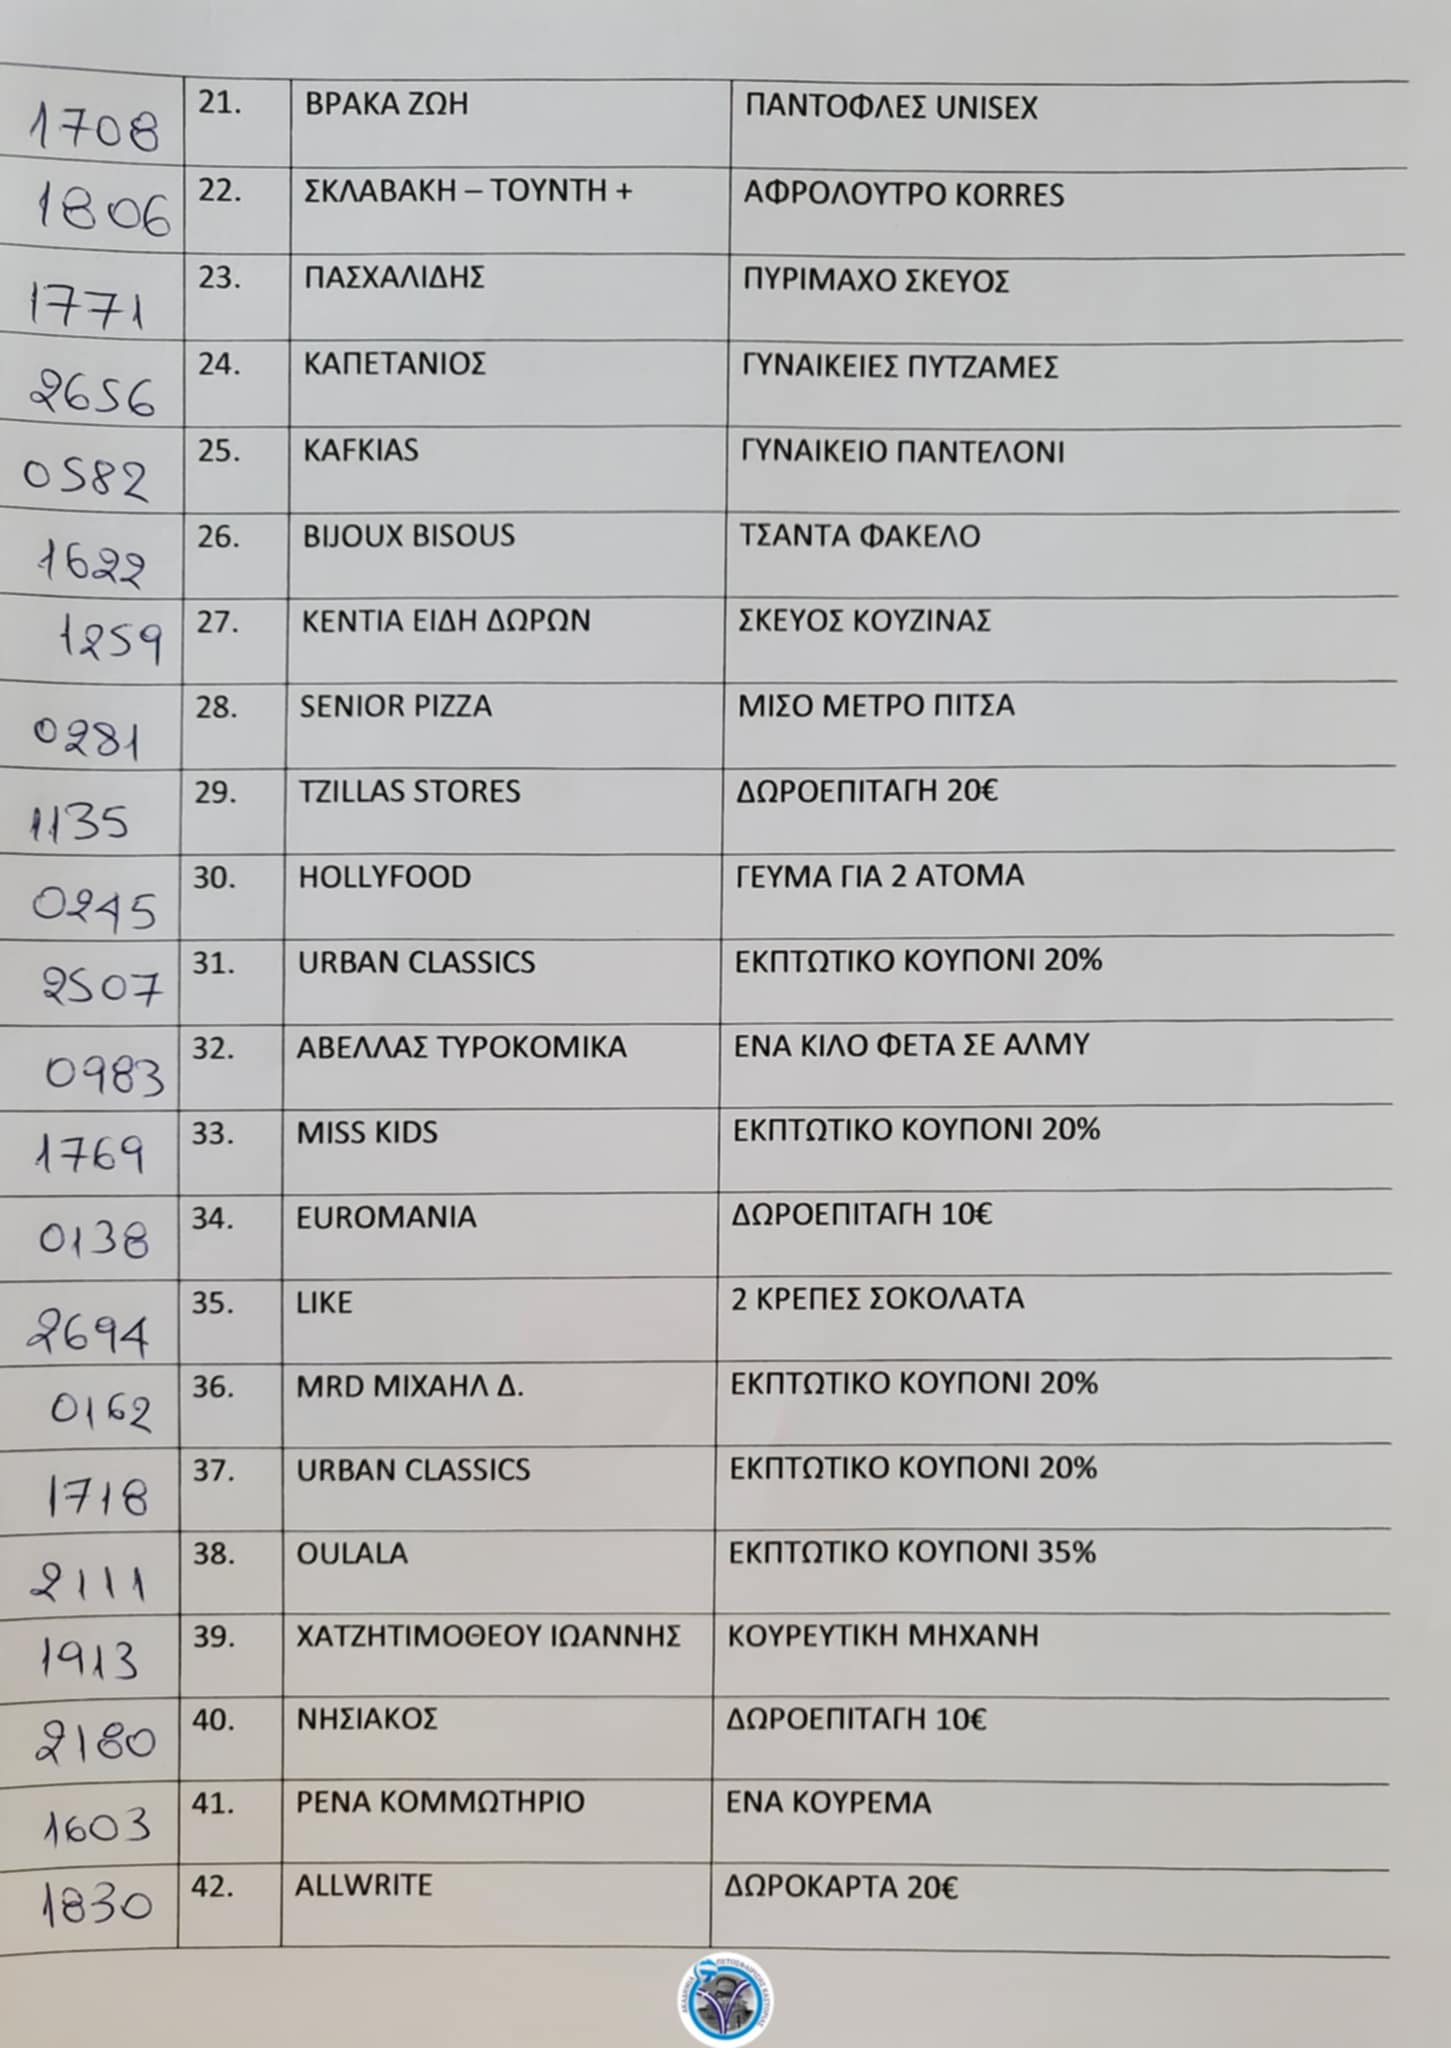 1708 21. ΒΡΑΚΑ ΖΩΗ ΠΑΝΤΟΦΛΕΣ UNISEX
1806 22. ΣΚΛΑΒΑΚΗ – ΤΟΥΝΤΗ + ΑΦΡΟΛΟΥΤΡΟ KORRES
1771 23. ΠΑΣΧΑΛΙΔΗΣ ΠΥΡΙΜΑΧΟ ΣΚΕΥΟΣ
2656 24. ΚΑΠΕΤΑΝΙΟΣ ΓΥΝΑΙΚΕΙΕΣ ΠΥΤΖΑΜΕΣ
0582 25. KAFKIAS ΓΥΝΑΙΚΕΙΟ ΠΑΝΤΕΛΟΝΙ
1622 26. BIJOUX BISOUS ΤΣΑΝΤΑ ΦΑΚΕΛΟ
1259 27. ΚΕΝΤΙΑ ΕΙΔΗ ΔΩΡΩΝ ΣΚΕΥΟΣ ΚΟΥΖΙΝΑΣ
0281 28. SENIOR PIZZA ΜΙΣΟ ΜΕΤΡΟ ΠΙΤΣΑ
1135 29. TZILLAS STORES ΔΩΡΟΕΠΙΤΑΓΗ 20€
0245 30. HOLLYFOOD ΓΕΥΜΑ ΓΙΑ 2 ΑΤΟΜΑ
2507 31. URBAN CLASSICS ΕΚΠΤΩΤΙΚΟ ΚΟΥΠΟΝΙ 20%
0983 32. ΑΒΕΛΛΑΣ ΤΥΡΟΚΟΜΙΚΑ ΕΝΑ ΚΙΛΟ ΦΕΤΑ ΣΕ ΑΛΜΥ
1769 33. MISS KIDS ΕΚΠΤΩΤΙΚΟ ΚΟΥΠΟΝΙ 20%
0138 34. EUROMANIA ΔΩΡΟΕΠΙΤΑΓΗ 10€
2694 35. LIKE 2 ΚΡΕΠΕΣ ΣΟΚΟΛΑΤΑ
0162 36. MRD ΜΙΧΑΗΛ Δ. ΕΚΠΤΩΤΙΚΟ ΚΟΥΠΟΝΙ 20%
1718 37. URBAN CLASSICS ΕΚΠΤΩΤΙΚΟ ΚΟΥΠΟΝΙ 20%
2111 38. OULALA ΕΚΠΤΩΤΙΚΟ ΚΟΥΠΟΝΙ 35%
1913 39. ΧΑΤΖΗΤΙΜΟΘΕΟΥ ΙΩΑΝΝΗΣ ΚΟΥΡΕΥΤΙΚΗ ΜΗΧΑΝΗ
2180 40. ΝΗΣΙΑΚΟΣ ΔΩΡΟΕΠΙΤΑΓΗ 10€
1603 41. ΡΕΝΑ ΚΟΜΜΩΤΗΡΙΟ ΕΝΑ ΚΟΥΡΕΜΑ
1830 42. ALLWRITE ΔΩΡΟΚΑΡΤΑ 20€
ΑΚΑΔΗΜΙΑ ΠΕΤΟΣΦΑΙΡΙΣΗΣ ΚΑΣΤΟΡΙΑΣ